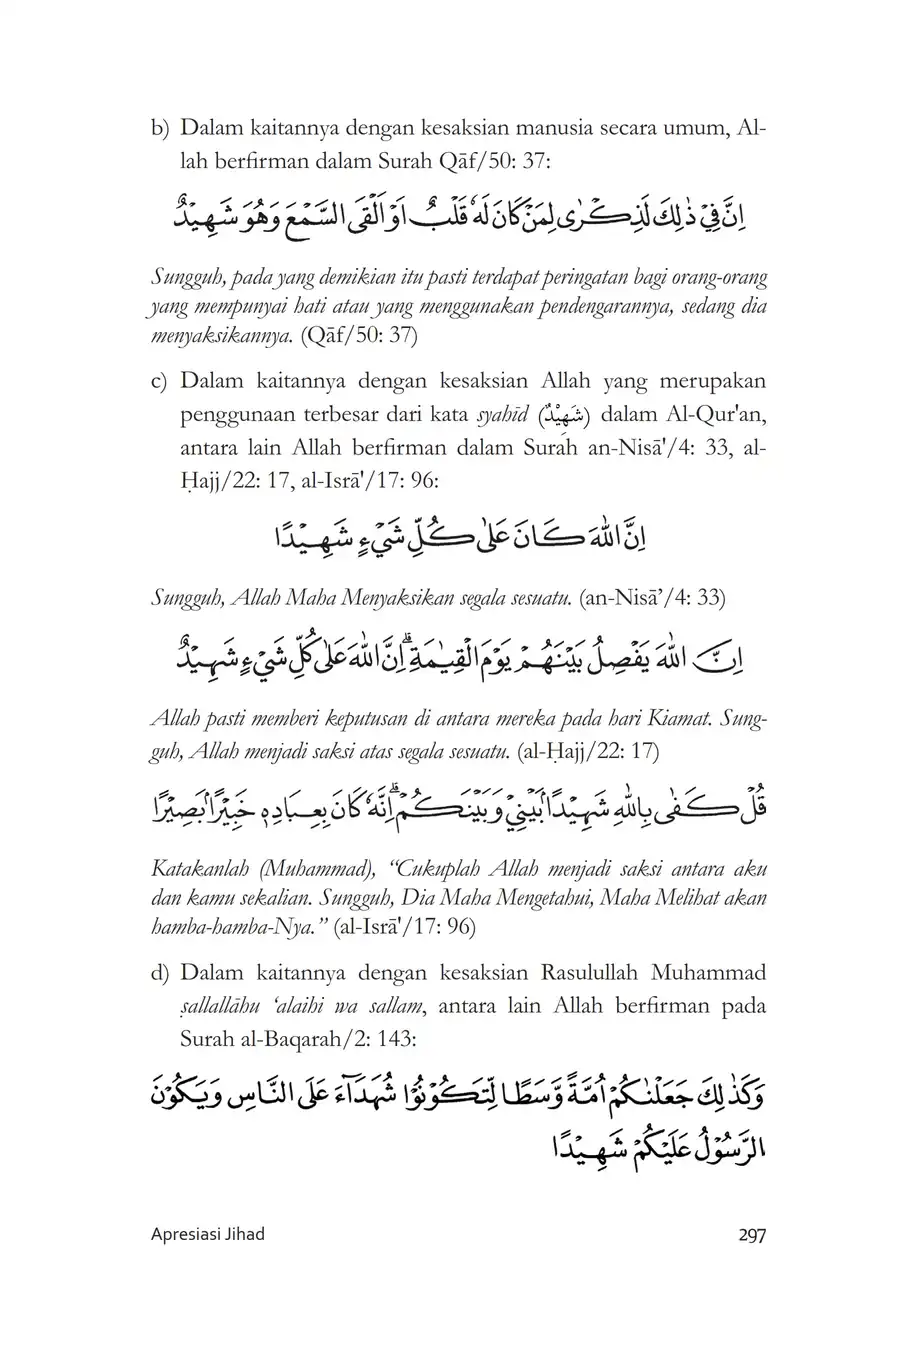 b) Dalam kaitannya dengan kesaksian manusia secara umum, Al-
lah berfirman dalam Surah Qāf/50: 37:
اِنَّ فِيْ ذٰلِكَ لَذِكْرٰى لِمَنْ كَانَ لَهٗ قَلْبٌ اَوْ اَلْقَى السَّمْعَ وَهُوَ شَهِيْدٌ
Sungguh, pada yang demikian itu pasti terdapat peringatan bagi orang-orang
yang mempunyai hati atau yang menggunakan pendengarannya, sedang dia
menyaksikannya. (Qāf/50: 37)
c) Dalam kaitannya dengan kesaksian Allah yang merupakan
penggunaan terbesar dari kata syahīd (شَهِيْدٌ) dalam Al-Qur'an,
antara lain Allah berfirman dalam Surah an-Nisā'/4: 33, al-
Ḥajj/22: 17, al-Isrā'/17: 96:
اِنَّ اللّٰهَ كَانَ عَلٰى كُلِّ شَيْءٍ شَهِيْدًا
Sungguh, Allah Maha Menyaksikan segala sesuatu. (an-Nisā’/4: 33)
اِنَّ اللّٰهَ يَفْصِلُ بَيْنَهُمْ يَوْمَ الْقِيٰمَةِۗ اِنَّ اللّٰهَ عَلٰى كُلِّ شَيْءٍ شَهِيْدٌ
Allah pasti memberi keputusan di antara mereka pada hari Kiamat. Sung-
guh, Allah menjadi saksi atas segala sesuatu. (al-Ḥajj/22: 17)
قُلْ كَفٰى بِاللّٰهِ شَهِيْدًاۢ بَيْنِيْ وَبَيْنَكُمْۗ اِنَّهٗ كَانَ بِعِبَادِهٖ خَبِيْرًاۢ بَصِيْرًا
Katakanlah (Muhammad), “Cukuplah Allah menjadi saksi antara aku
dan kamu sekalian. Sungguh, Dia Maha Mengetahui, Maha Melihat akan
hamba-hamba-Nya.” (al-Isrā'/17: 96)
d) Dalam kaitannya dengan kesaksian Rasulullah Muhammad
ṣallallāhu ‘alaihi wa sallam, antara lain Allah berfirman pada
Surah al-Baqarah/2: 143:
وَكَذٰلِكَ جَعَلْنٰكُمْ اُمَّةً وَّسَطًا لِّتَكُوْنُوْا شُهَدَاۤءَ عَلَى النَّاسِ وَيَكُوْنَ
الرَّسُوْلُ عَلَيْكُمْ شَهِيْدًا
Apresiasi Jihad 297